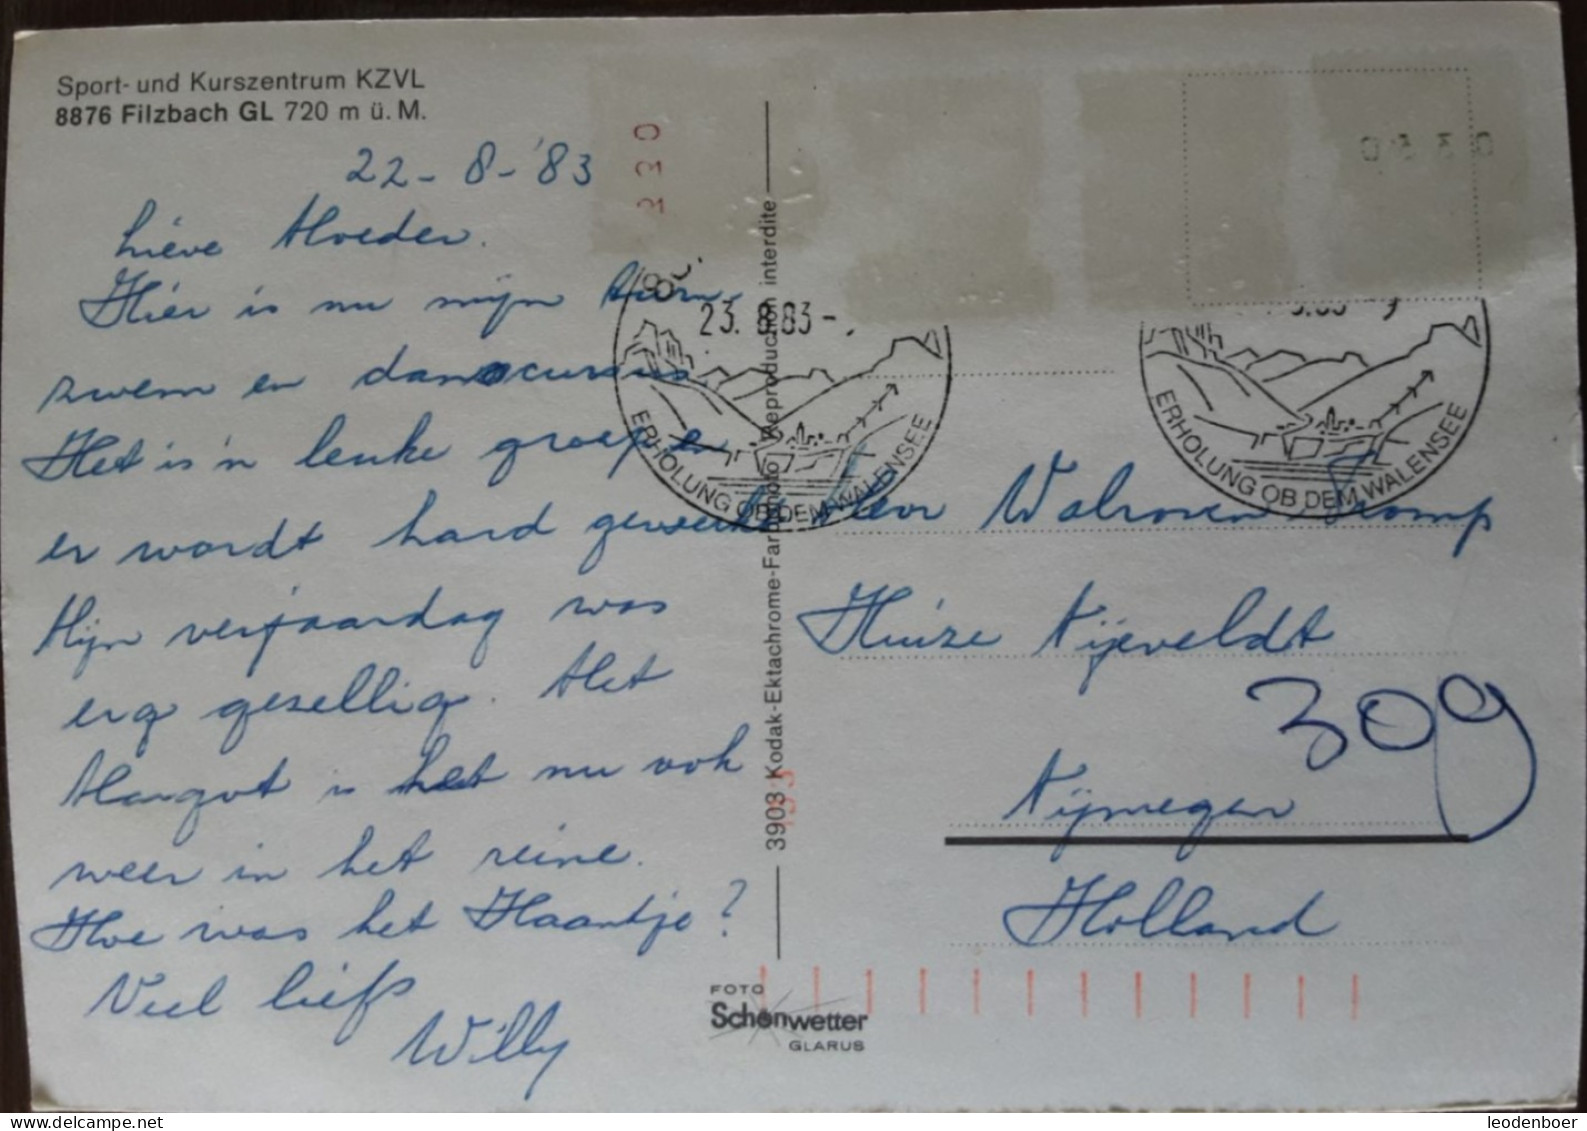 Sport- und Kurszentrum KZVL
8876 Filzbach GL 720 m ü. M.
22-8-'83
Lieve Moeder.
Hier is nu mijn turn-
zwem en danscursus
Het is 'n leuke groep en
er wordt hard gewerkt
Mijn verjaardag was
erg gezellig. Met
Margot is het nu ook
weer in het reine.
Hoe was het Haantje?
Veel liefs
Willy
3903 Kodak-Ektachrome-Farbphoto Reproduction interdite
FOTO
Schönwetter
GLARUS
23. 8. 83 -
ERHOLUNG OB DEM WALENSEE
ERHOLUNG OB DEM WALENSEE
Mevr Walraven Tromp
Huize Nijeveldt
309
Nijmegen
Holland
leodenboer